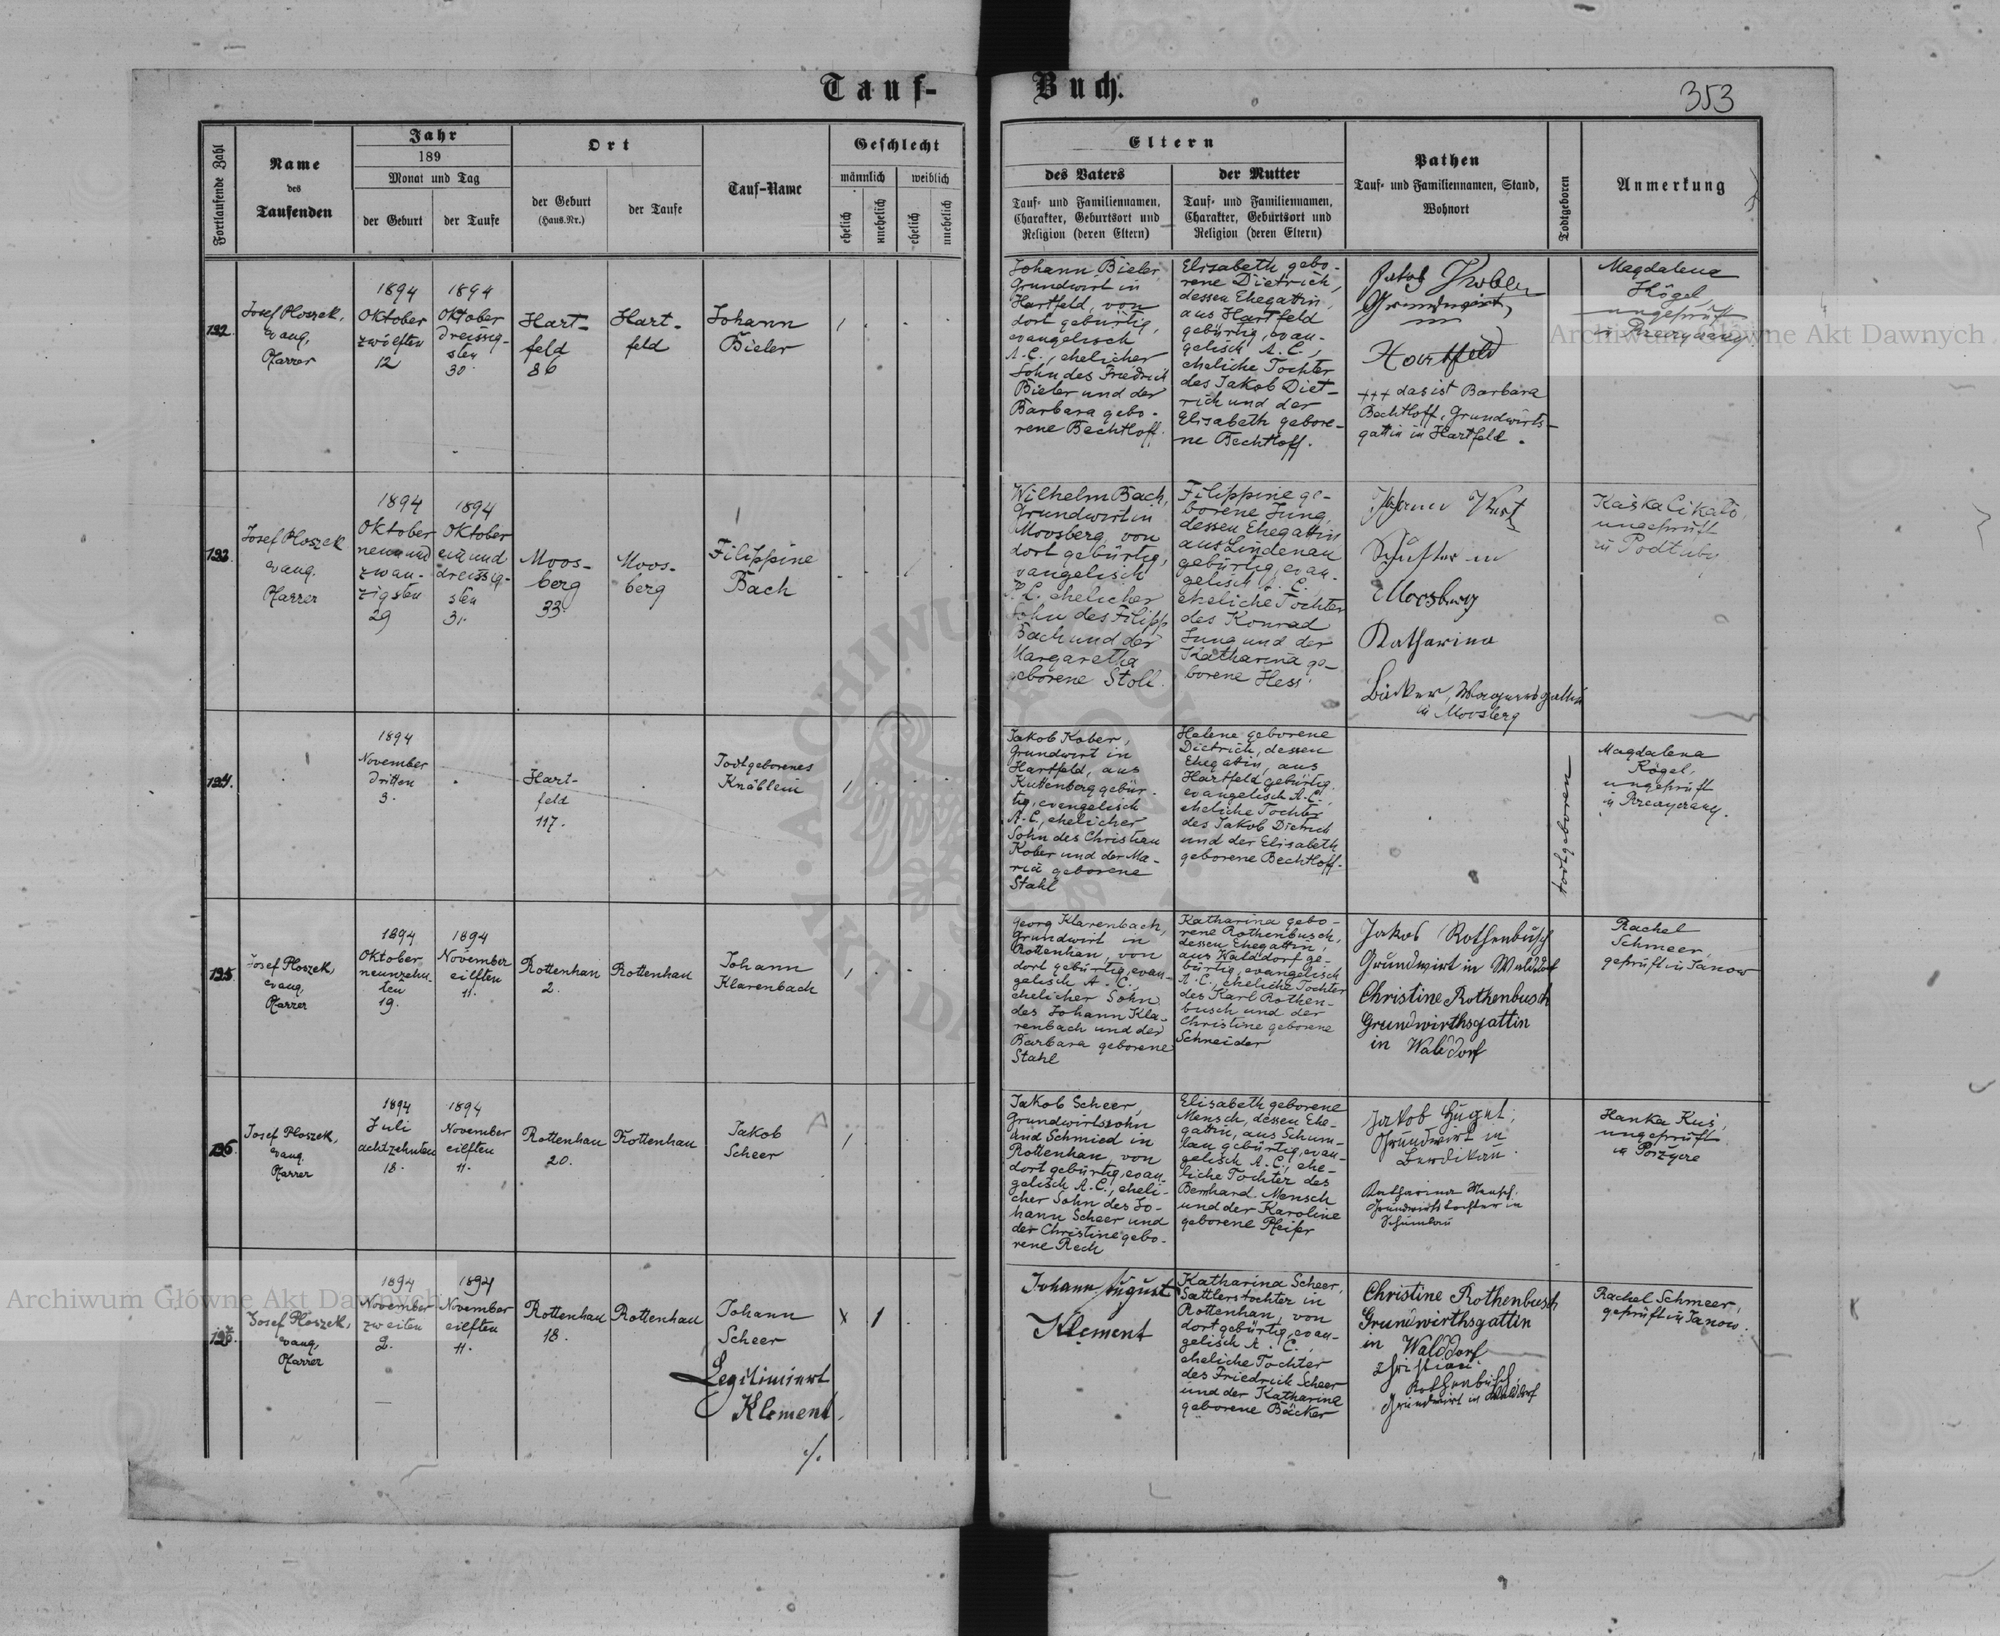 Tauf-Buch.
353
Fortlaufende Zahl
Name
des
Taufenden
Jahr
189
Monat und Tag
der Geburt
der Taufe
Ort
der Geburt
(Haus-Nr.)
der Taufe
Tauf-Name
Geschlecht
männlich
weiblich
ehelich
unehelich
ehelich
unehelich
Eltern
des Vaters
Tauf- und Familiennamen,
Charakter, Geburtsort und
Religion (deren Eltern)
der Mutter
Tauf- und Familiennamen,
Charakter, Geburtsort und
Religion (deren Eltern)
Pathen
Tauf- und Familiennamen, Stand,
Wohnort
Todtgeboren
Anmerkung
192.
Josef Ploszek,
evang.
Pfarrer
1894
Oktober
zwölften
12
1894
Oktober
dreissig-
sten
30.
Hart-
feld
86
Hart-
feld
Johann
Bieler
Johann Bieler
Grundwirt in
Hartfeld, von
dort gebürtig,
evangelisch
A. C., ehelicher
Sohn des Friedrich
Bieler und der
Barbara gebo-
rene Bechtloff.
Elisabeth gebo-
rene Dietrich,
dessen Ehegattin,
aus Hartfeld
gebürtig, evan-
gelisch A. C.,
eheliche Tochter
des Jakob Diet-
rich und der
Elisabeth gebore-
ne Bechtloff.
Jakob
Grundwirt,
Hartfeld
+++ das ist Barbara
Bechtloff, Grundwirts-
gattin in Hartfeld.
Magdalena
Kögel
ungeprüft
193.
Josef Ploszek
evang.
Pfarrer
1894
Oktober
neunund
zwan-
zigsten
29
1894
Oktober
einund
dreissig-
sten
31.
Moos-
berg
33.
Moos-
berg
Filippine
Bach
Wilhelm Bach,
Grundwirt in
Moosberg, von
dort gebürtig,
evangelisch
A. C. ehelicher
Sohn des Filipp
Bach und der
Margaretha
geborene Stoll.
Filippine ge-
borene Jung,
dessen Ehegattin
aus Lindenau
gebürtig, evan-
gelisch A. C.
eheliche Tochter
des Konrad
Jung und der
Katharina ge-
borene Hess.
Schuster in
Moosberg
Katharina
Bäcker, Wagnersgattin
in Moosberg
Kaśka
ungeprüft
in
194.
1894
November
dritten
3.
Hart-
feld
117.
Todtgeborenes
Knäblein
Jakob Kober,
Grundwirt in
Hartfeld, aus
Kuttenberg gebür-
tig, evangelisch
A. C., ehelicher
Sohn des Christian
Kober und der Ma-
ria geborene
Stahl
Helene geborene
Dietrich, dessen
Ehegattin, aus
Hartfeld gebürtig,
evangelisch A. C.,
eheliche Tochter
des Jakob Dietrich
und der Elisabeth
geborene Bechtloff.
todtgeboren
Magdalena
Kögel,
ungeprüft
in
195.
Josef Ploszek,
evang.
Pfarrer
1894
Oktober
neunzehn-
ten
19.
1894
November
eilften
11.
Rottenhan
2.
Rottenhan
Johann
Klarenbach
Georg Klarenbach,
Grundwirt in
Rottenhan, von
dort gebürtig, evan-
gelisch A. C.,
ehelicher Sohn
des Johann Kla-
renbach und der
Barbara geborene
Stahl
Katharina gebo-
rene Rothenbusch,
dessen Ehegattin,
aus Walddorf ge-
bürtig, evangelisch
A. C., eheliche Tochter
des Karl Rothen-
busch und der
Christine geborene
Schneider
Jakob Rothenbusch
Grundwirt in Walddorf
Christine Rothenbusch
Grundwirthsgattin
in Walddorf
Rachel
Schmeer
geprüft in Janow
196.
Josef Ploszek,
evang.
Pfarrer
1894
Juli
achtzehnten
18.
1894
November
eilften
11.
Rottenhan
20.
Rottenhan
Jakob
Scheer
Jakob Scheer,
Grundwirtssohn
und Schmied in
Rottenhan, von
dort gebürtig, evan-
gelisch A. C., eheli-
cher Sohn des Jo-
hann Scheer und
der Christine gebo-
rene Rech
Elisabeth geborene
Mensch, dessen Ehe-
gattin, aus Schum-
lau gebürtig, evan-
gelisch A. C., ehe-
liche Tochter des
Bernhard Mensch
und der Karoline
geborene Pfeifer
Jakob
Grundwirt in
Berdikau.
Katharina Mensch,
Grundwirtstochter in
Schumlau
Hanka Kuś,
ungeprüft
in
Josef Ploszek,
evang.
Pfarrer
1894
November
zweiten
2.
1894
November
eilften
11.
Rottenhan
18.
Rottenhan
Johann
Scheer
Legitimiert
Klement
./.
Johann August
Klement
Katharina Scheer,
Sattlerstochter in
Rottenhan, von
dort gebürtig, evan-
gelisch A. C.,
eheliche Tochter
des Friedrich Scheer
und der Katharina
geborene Bäcker
Christine Rothenbusch
Grundwirthsgattin
in Walddorf
Christian
Rothenbusch
Grundwirt in Walddorf
Rachel Schmeer,
geprüft in Janow.
Archiwum Główne Akt Dawnych
Archiwum Główne Akt Dawnych
ARCHIWUM GŁÓWNE AKT DAWNYCH